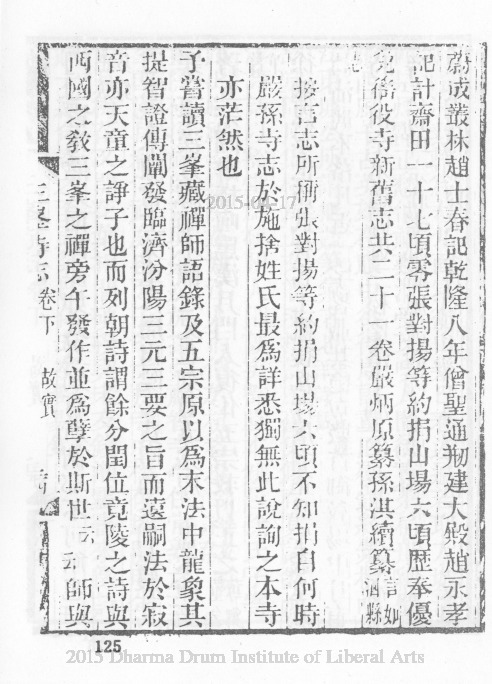 蔚成叢林趙士春記乾隆八年僧聖通刱建大殿趙永孝
記計齋田一十七頃零張對揚等約捐山場六頃歷奉優
免徭役寺新舊志共二十一卷嚴炳原纂孫淇續纂言如泗縣
志
按言志所稱張對揚等約捐山場六頃不知捐自何時
嚴孫寺志於施捨姓氏最爲詳悉獨無此說詢之本寺
亦茫然也
予嘗讀三峯藏禪師語錄及五宗原以爲末法中龍象其
提智證傳闡發臨濟汾陽三元三要之旨而遠嗣法於寂
音亦天童之諍子也而列朝詩謂餘分閏位竟陵之詩與
西國之敎三峯之禪旁午發作並爲孽於斯世云云師與
三峯寺志 卷下 故實
2015-04-17
125
2015 Dharma Drum Institute of Liberal Arts